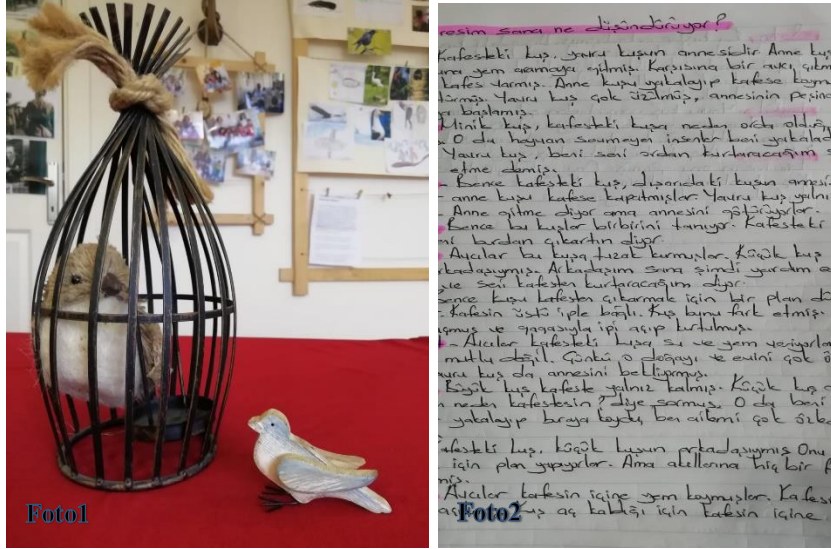 Foto1
resim sana ne düşündürüyor?
Kafesteki kuş, yavru kuşun annesidir. Anne kuş
yem aramaya gitmiş. Karşısına bir avcı çıkm
kafes varmış. Anne kuşu yakalayıp kafese koym
Yavru kuş çok üzülmüş, annesinin peşine
başlamış.
Minik kuş, kafesteki kuşa neden orda olduğ
O da hayvan sevmeyen insanlar beni yakaladı
Yavru kuş, beni seni ordan kurtaracağım
etme demiş.
- Bence kafesteki kuş, dışarıdaki kuşun annesi
anne kuşu kafese kapatmışlar. Yavru kuş yalnı
Anne gitme diyor ama annesini götürüyorlar.
Bence bu kuşlar birbirini tanıyor. Kafesteki
burdan çıkartın diyor
Avcılar bu kuşa tuzak kurmuşlar. Küçük kuş
arkadaşıymış. Arkadaşım sana şimdi yardım e
seni kafesten kurtaracağım diyor.
ence kuşu kafesten çıkarmak için bir plan
- Kafesin üstü iple bağlı. Kuş bunu fark etmiş.
ve gagasıyla ipi açıp kurtulmuş.
- Avcılar kafesteki kuşa su ve yem veriyorlar
mutlu değil. Çünkü o doğayı ve evini çok ö
kuş da annesini bekliyormuş.
Büyük kuş kafeste yalnız kalmış. Küçük kuş
neden kafestesin? diye sormuş. O da beni
yakalayıp buraya koydu, ben ailemi çok özle
afesteki kuş, küçük kuşun arkadaşıymış Onu
için plan yapıyorlar. Ama akıllarına hiç bir f
Avcılar kafesin içine yem koymuşlar. Kafes
kuş aç kaldığı için kafesin içine
Foto2